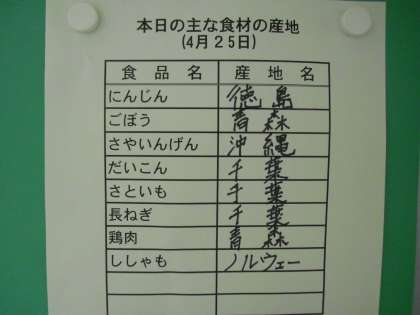 本日の主な食材の産地
(4月25日)
食品名 産地名
にんじん 徳島
ごぼう 青森
さやいんげん 沖縄
だいこん 千葉
さといも 千葉
長ねぎ 千葉
鶏肉 青森
ししゃも ノルウェー